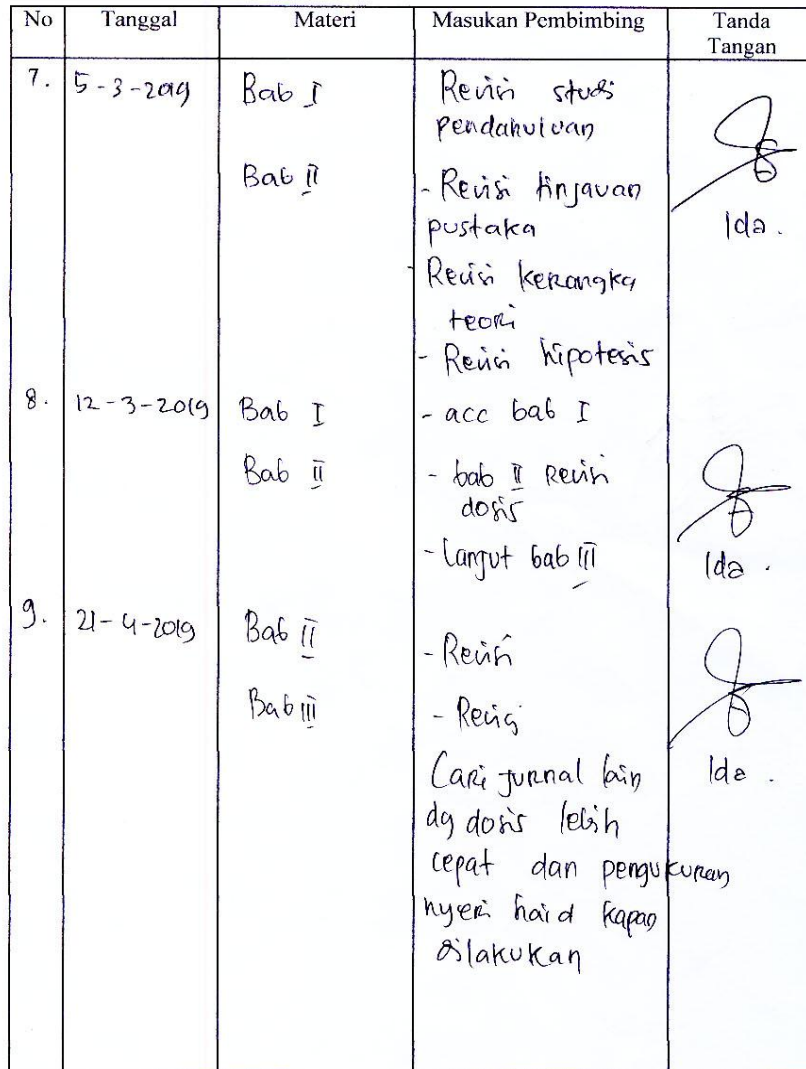 No Tanggal Materi Masukan Pembimbing Tanda
Tangan
7. 5-3-2019 Bab I Revisi studi
pendahuluan
Bab II - Revisi tinjauan
pustaka Ida.
- Revisi kerangka
teori
- Revisi hipotesis
8. 12-3-2019 Bab I - acc bab I
Bab II - bab II Revisi
dosis
- Lanjut bab III Ida.
9. 21-4-2019 Bab II - Revisi
Bab III - Revisi
Cari jurnal lain Ida.
dg dosis lebih
cepat dan pengukuran
nyeri haid kapan
dilakukan